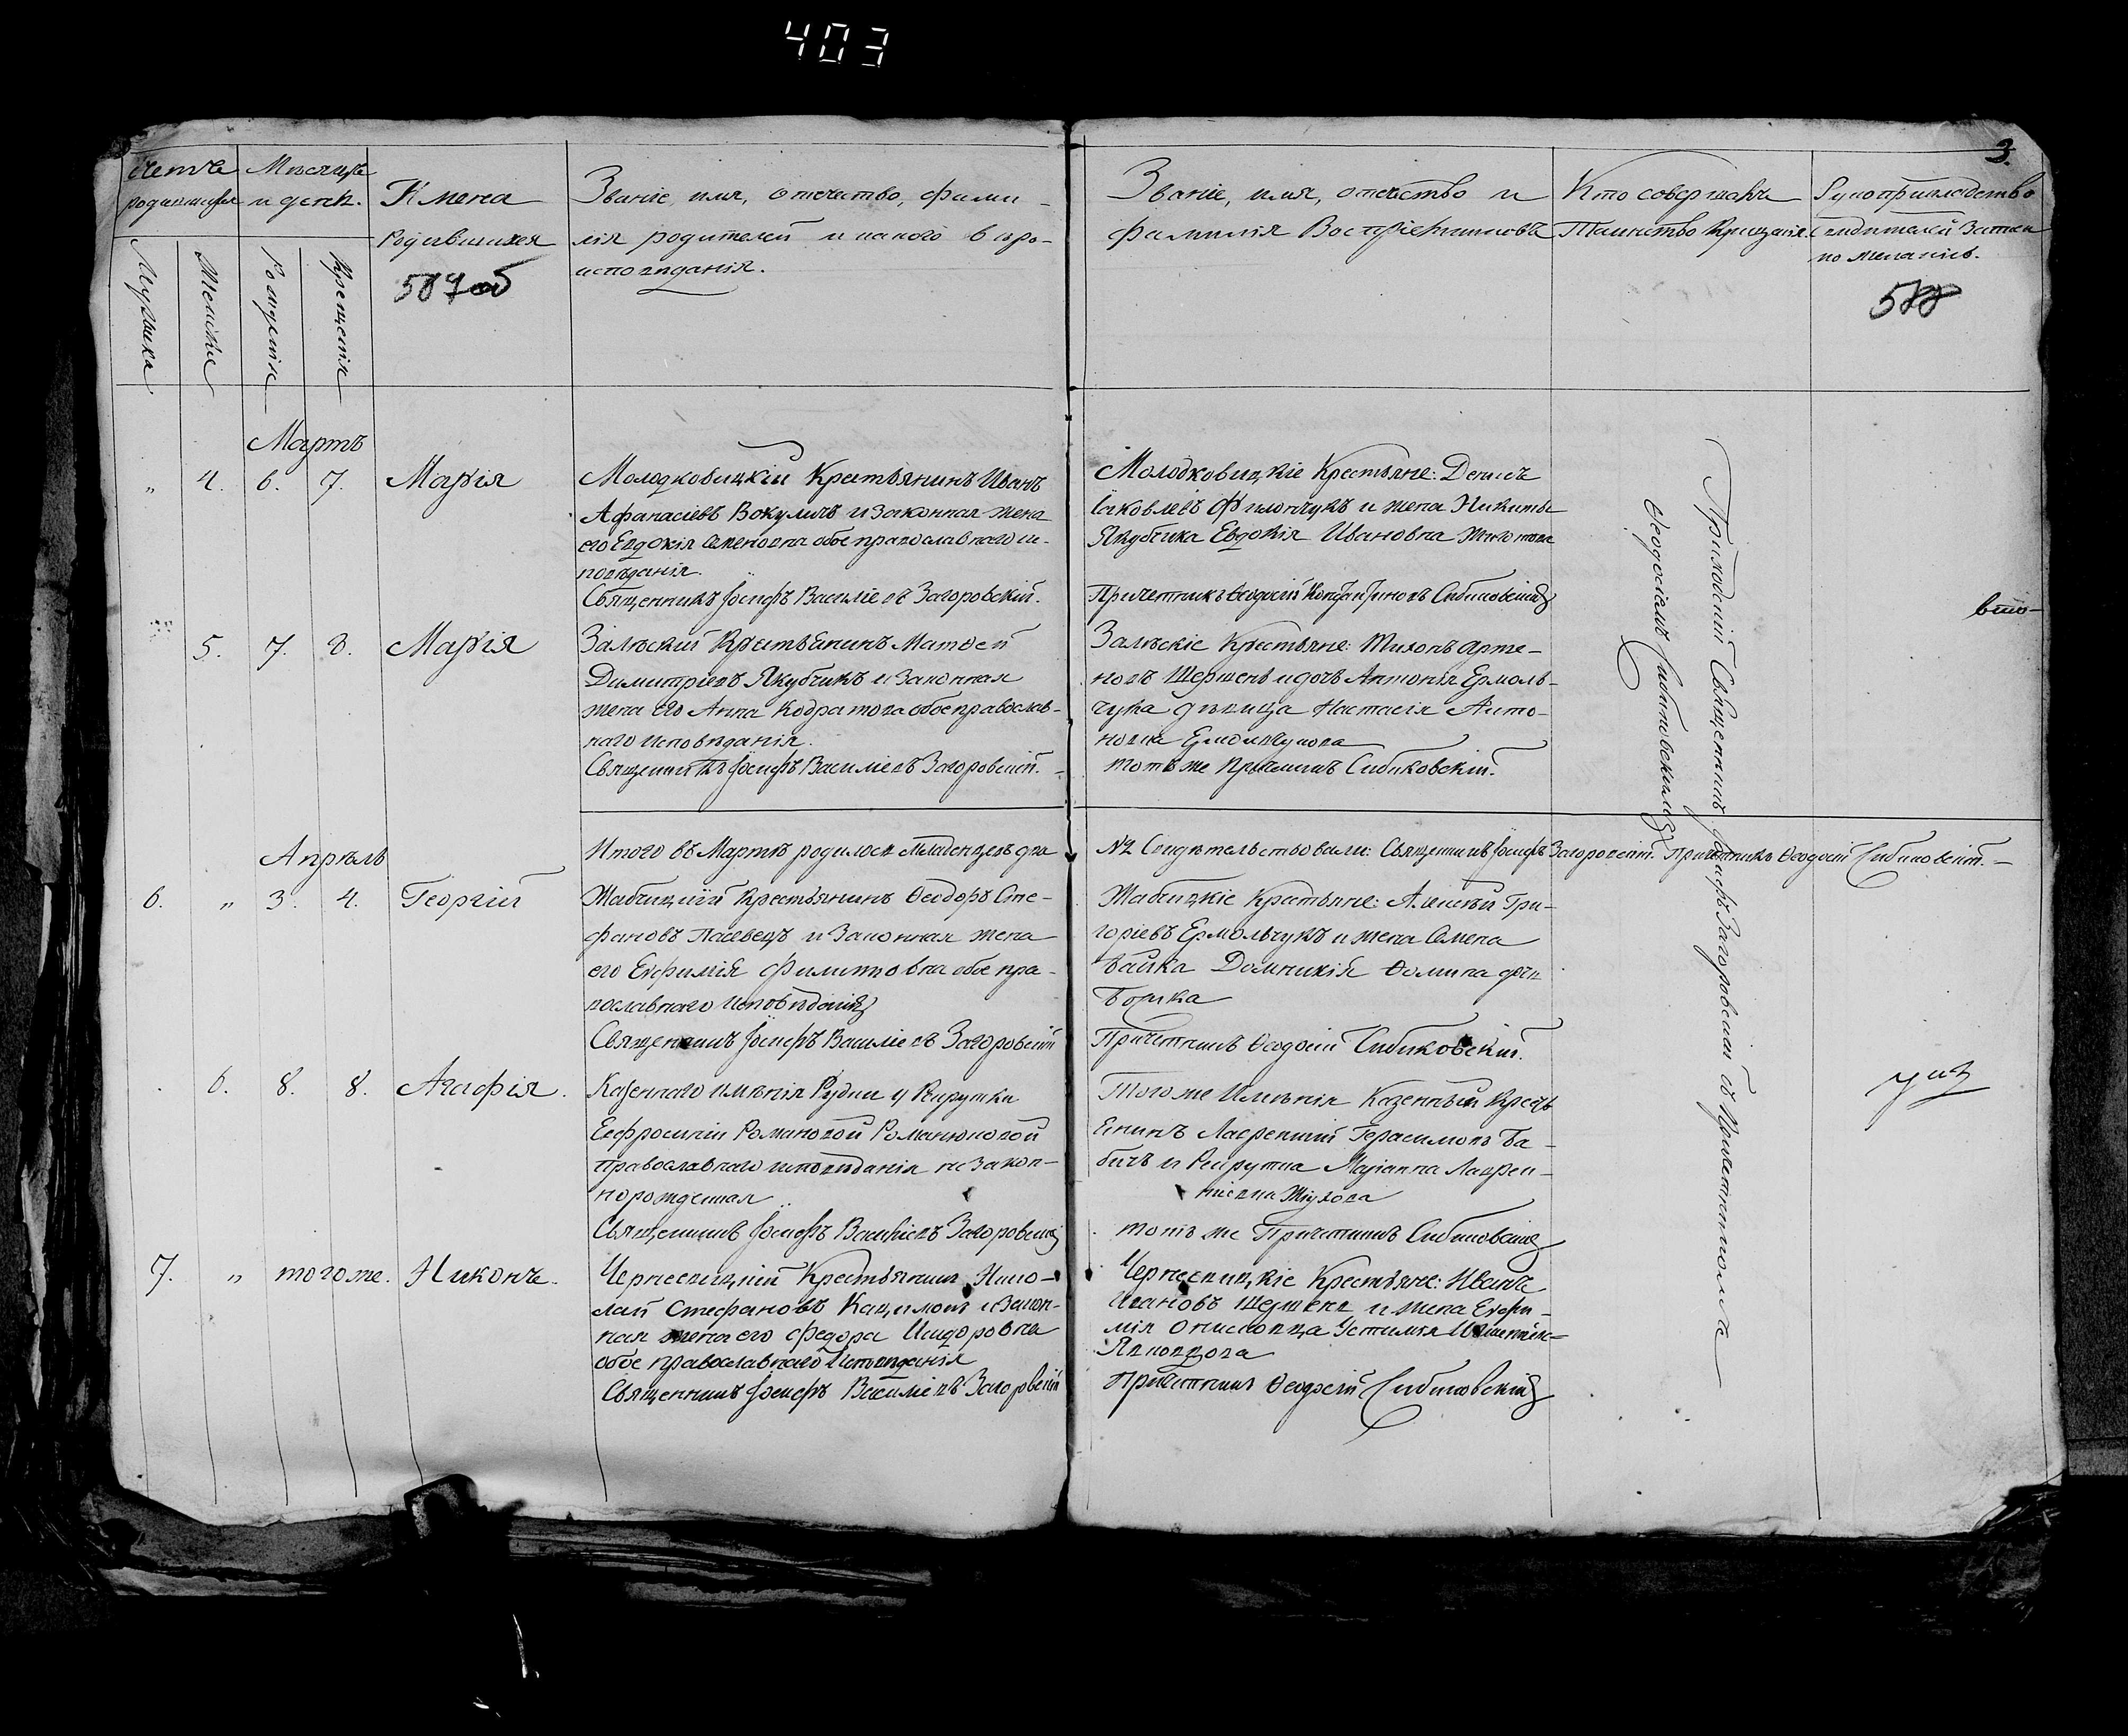 403
3.
Счетъ родившихся
Мѣсяцъ и день.
Имена
Родившихся
587об
Званіе, имя, отечество, фами-
лія родителей и какого вѣро-
исповѣданія.
Мужска
Женска
Рожденія
Крещенія
Званіе, имя, отечество и
фамилія Воспріемниковъ
Кто совершалъ
Таинство Крещенія.
Рукоприкладство
свидѣтелей Записи
по желанію.
588
Мартъ
„ 4. 6. 7. Марія
Молодковицкій Крестьянинъ Иванъ
Афанасіевъ Вокуличъ и законная жена
его Евдокія Семеновна обое православнаго ис-
повѣданія.
Священникъ Іосифъ Василіевъ Загоровскій.
Молодковицкіе Крестьяне: Денисъ
Іаковлевъ Филончукъ и жена Никиты
Якубчика Евдокія Ивановна
Причетникъ Ѳеодосій Константиновъ Сибиковскій
5. 7. 8. Марія
Залѣскій Крестьянинъ Матѳей
Димитріевъ Якубчикъ и Законная
жена его Анна Кодратова обое православ-
наго исповѣданія.
Священникъ Іосифъ Василіевъ Загоровскій.
Залѣскіе Крестьяне: Тихонъ Арте-
новъ Шершень и дочь Антонія Ермоль-
чука дѣвица Настасія Анто-
новна
тотъ же Причетникъ Сибиковскій.
вто-
Итого въ Мартѣ родилось Младенцевъ два
№2 Свидѣтельствовали: Священникъ Іосифъ Загоровскій. Причетникъ Ѳеодосій Сибиковскій.
Апрѣль
6. „ 3. 4. Георгій
Жабчицкій Крестьянинъ Ѳеодоръ Сте-
фановъ Пасевецъ и Законная жена
его Евфимія Филиповна обое пра-
вославнаго исповѣданія
Священникъ Іосифъ Василіевъ Загоровскій
Жабчицкіе Крестьяне: Алексѣй Гри-
горіевъ Ермольчукъ и жена Семена
Домникія Ѳомина дочь
Причетникъ Ѳеодосій Сибиковскій.
6. 8. 8. Агафія.
Казеннаго имѣнія Рудни Рекрутки
Евфросиніи Романовой Романюковой
православнаго исповѣданія незакон-
норожденная
Священникъ Іосифъ Василіевъ Загоровскій
Того же Имѣнія Казенный Кресть-
янинъ Лаврентій Герасимовъ Ба-
бичъ и Рекрутка Маріанна Лаврен-
тіевна
тотъ же Причетникъ Сибиковскій
7. „ того же. Никонъ.
Чернѣевицкій Крестьянинъ Нико-
лай Стефановъ и Закон-
ная жена его Федора Исидоровна
обое православнаго Исповѣданія
Священникъ Іосифъ Василіевъ Загоровскій
Чернѣевицкіе Крестьяне: Иванъ
Ивановъ Шершень и жена Евфи-
мія Устимія
Причетникъ Ѳеодосій Сибиковскій
Приходскій Священникъ Іосифъ Загоровскій съ Причетникомъ
Ѳеодосіемъ Сибиковскимъ